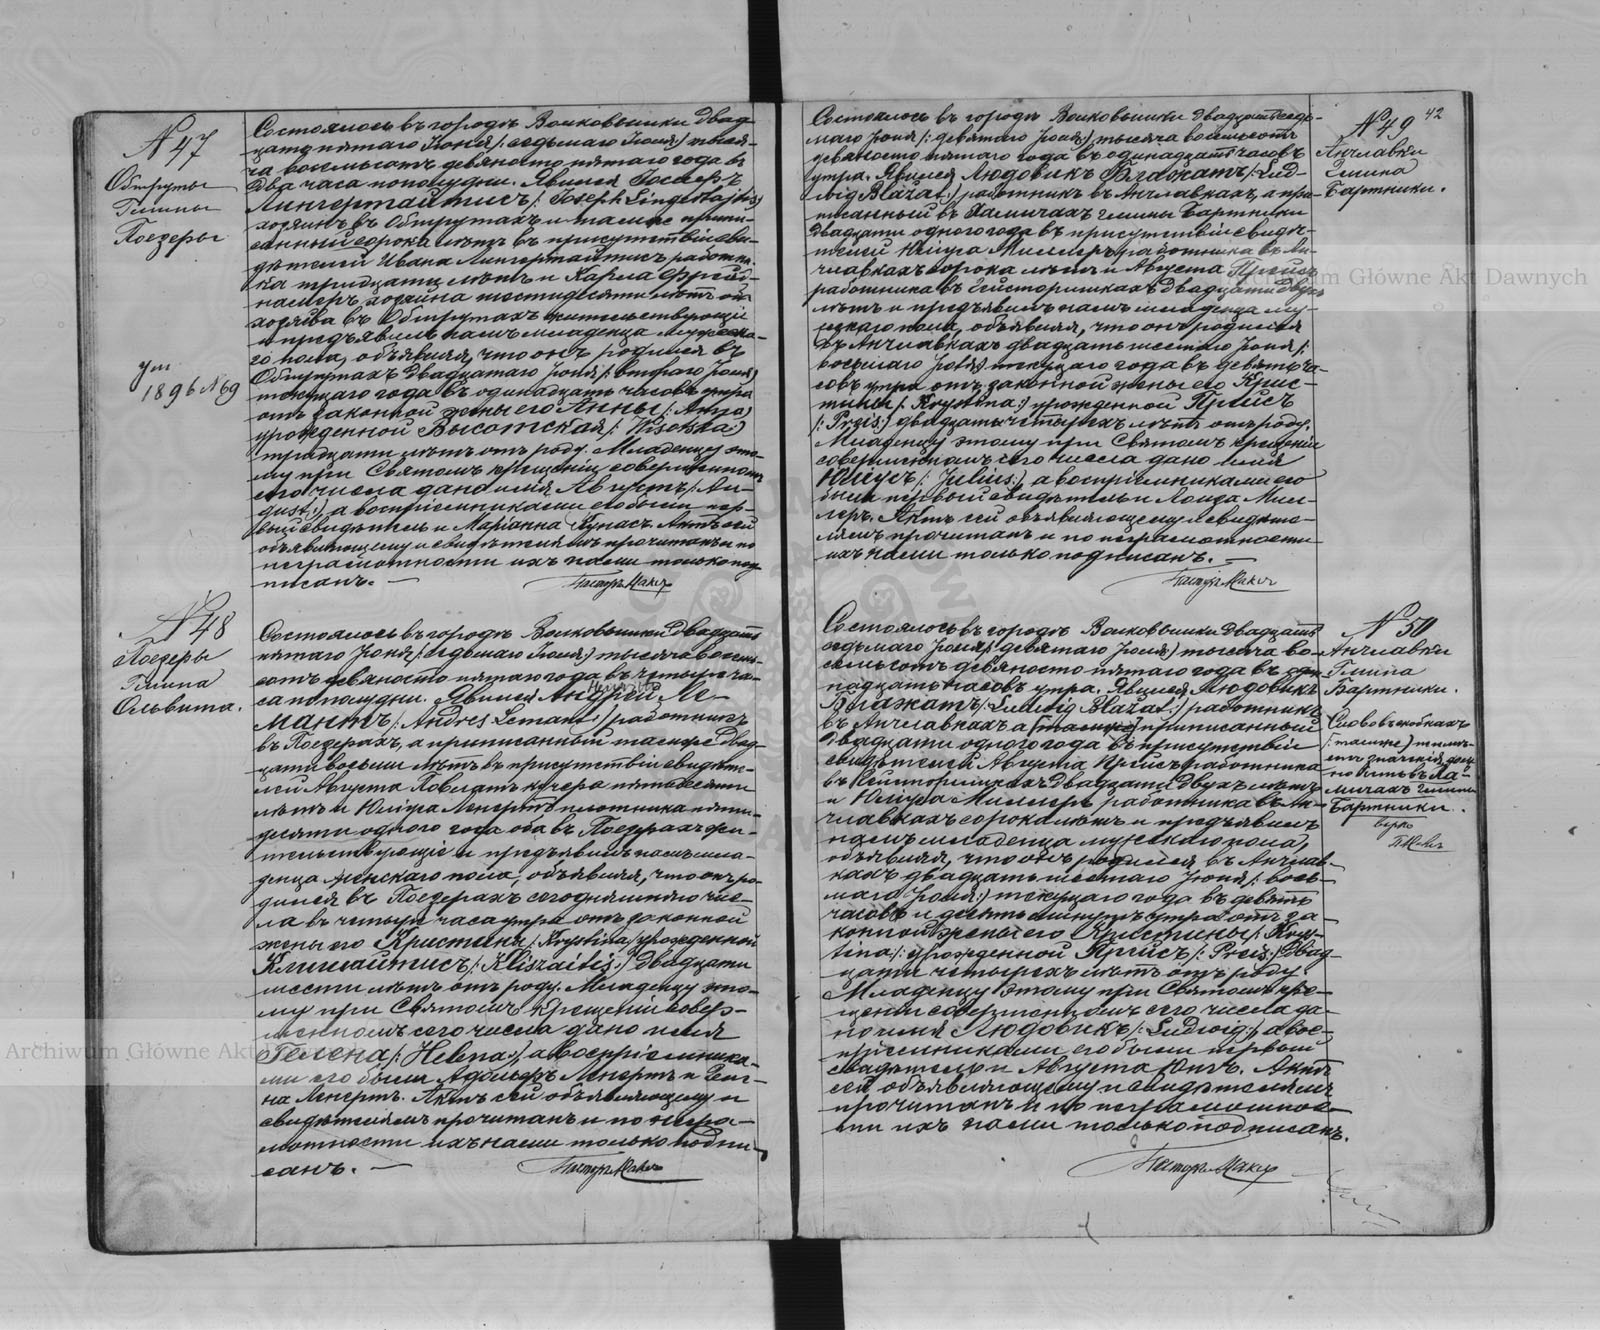 N 47
Обшруты
Гмины
Поезеры
ум
1896 N 69
Состоялось въ городѣ Волковышки двад-
цать пятаго Іюня /: седьмаго Іюля :/ тыся-
ча восемьсотъ девяносто пятаго года въ
два часа пополудни. Явился Госифъ
Лингертайтисъ /: Joseph Lingertajtis :/
хозяинъ въ Обшрутахъ и тамже припи-
санный сорока лѣтъ въ присутствіи сви-
дѣтелей Ивана Лингертайтисъ работни-
ка тридцати лѣтъ и Карла
хозяина шестидесяти лѣтъ
въ Обшрутахъ жительствующіе
и предъявилъ намъ младенца мужеска-
го пола, объявляя, что онъ родился въ
Обшрутахъ двадцатаго Іюня /: втораго Іюля :/
текущаго года въ одинадцать часовъ утра
отъ законной жены его Анны /: Anna :/
урожденной Высотская /: Visotska :/
тридцати лѣтъ отъ роду. Младенцу это-
му при Святомъ крещеніи совершенномъ
сего числа дано имя Августъ /: Au-
gust :/ а воспріемниками его были пер-
вый свидѣтель и Маріанна Кунасъ. Актъ сей
объявляющему и свидѣтелямъ прочитанъ и по
неграмотности ихъ нами только под-
писанъ. —
Пасторъ
N 48
Поезеры
Гмина
Ольвита.
Состоялось въ городѣ Волковышки двадцать
пятаго Іюня /: седьмаго Іюля :/ тысяча восемь-
сотъ девяносто пятаго года въ четыре ча-
са пополудни. Явился Андрей Ле-
мантъ /: Andres Lemant :/ работникъ
въ Поезерахъ, а приписанный тамже двад-
цати восьми лѣтъ въ присутствіи свидѣте-
лей Августа кучера пятидесяти
лѣтъ и Юліуса Ленертъ плотника пяти-
десяти одного года оба въ Поезерахъ жи-
тельствующіе и предъявилъ намъ мла-
денца женскаго пола, объявляя, что онъ ро-
дился въ Поезерахъ сегодняшняго чис-
ла въ четыре часа утра отъ законной
жены его Кристины /: Krystina :/ урожденной
Клишайтисъ /: Kliszaitis :/ двадцати
шести лѣтъ отъ роду. Младенцу это-
му при Святомъ Крещеніи совер-
шенномъ сего числа дано имя
Гелена /: Helena :/ а воспріемника-
ми его были Адольфъ Ленертъ и
на Ленертъ. Актъ сей объявляющему и
свидѣтелямъ прочитанъ и по негра-
мотности ихъ нами только подпи-
санъ. —
Пасторъ
42
N 49
Анчлавки
Гмина
Бартники.
Состоялось въ городѣ Волковышки двадцать седь-
маго Іюня /: девятаго Іюля :/ тысяча восемьсотъ
девяносто пятаго года въ одинадцать часовъ
утра. Явился Людовикъ Блажатъ /: Lud-
wig Blażat :/ работникъ въ Анчлавкахъ, а при-
писанный въ Ламичахъ гмины Бартники
двадцати одного года въ присутствіи свидѣ-
телей Юліуса Миллеръ работника въ Ан-
члавкахъ сорока лѣтъ и Августа Прейсъ
работника въ двадцати двухъ
лѣтъ и предъявилъ намъ младенца му-
жескаго пола, объявляя, что онъ родился
въ Анчлавкахъ двадцать шестаго Іюня /:
восьмаго Іюля :/ текущаго года въ девять ча-
совъ утра отъ законной жены его Крис-
тины /: Krystina :/ урожденной Прейсъ
двадцати четырехъ лѣтъ отъ роду.
Младенцу этому при Святомъ крещеніи
совершенномъ сего числа дано имя
Юліусъ /: Julius :/ а воспріемниками его
были первый свидѣтель и Мил-
леръ. Актъ сей объявляющему и свидѣте-
лямъ прочитанъ и по неграмотности
ихъ нами только подписанъ. —
Пасторъ
N 50
Анчлавки
Гмина
Бартники.
Слово въ скобкахъ
/: тамже :/
Бартники.
вѣрно
Состоялось въ городѣ Волковышки двадцать
седьмаго Іюня /: девятаго Іюля :/ тысяча во-
семьсотъ девяносто пятаго года въ оди-
надцать часовъ утра. Явился Людовикъ
Блажатъ /: Ludwig Blażat :/ работникъ
въ Анчлавкахъ а /: тамже :/ приписанный
двадцати одного года въ присутствіи
свидѣтелей Августа Прейсъ работника
въ двадцати двухъ лѣтъ
и Юліуса Миллеръ работника въ Ан-
члавкахъ сорока лѣтъ и предъявилъ
намъ младенца мужескаго пола,
объявляя, что онъ родился въ Анчлав-
кахъ двадцать шестаго Іюня /: вось-
маго Іюля :/ текущаго года въ девять
часовъ и десять минутъ утра отъ за-
конной жены его Кристины /: Krys-
tina :/ урожденной Прейсъ /: Preis :/ двад-
цати четырехъ лѣтъ отъ роду.
Младенцу этому при Святомъ кре-
щеніи совершенномъ сего числа да-
но имя Людовикъ /: Ludwig :/ а вос-
пріемниками его были первый
свидѣтель и Августа Юнъ. Актъ
сей объявляющему и свидѣтелямъ
прочитанъ и по неграмотнос-
ти ихъ нами только подписанъ.
Пасторъ
Archiwum Główne Akt Dawnych
Archiwum Główne Akt